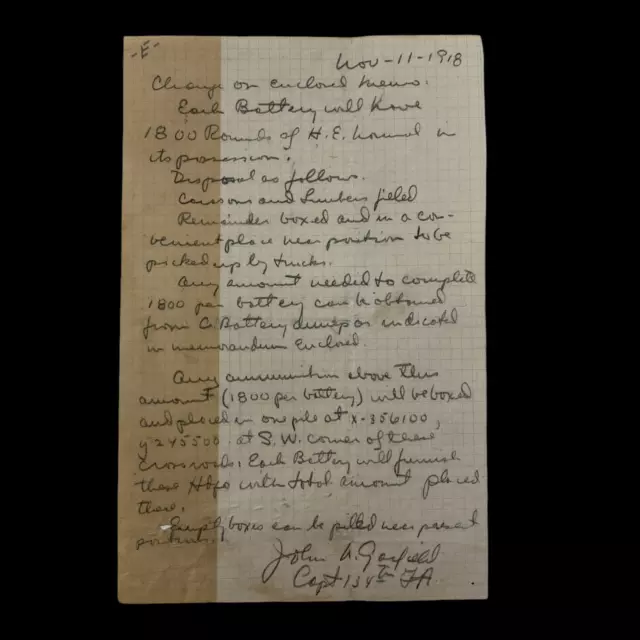 -E-
Nov-11-1918
Change on enclosed memo.
Each Battery will have
1800 Rounds of H.E. normal in
its possession.
Disposal as follows.
Caissons and Limbers filled
Remainder boxed and in a con-
venient place near position to be
picked up by trucks.
Any amount needed to complete
1800 per battery can be obtained
from C. Battery dump as indicated
in memorandum enclosed.
Any ammunition above this
amount (1800 per battery) will be boxed
and placed in one pile at X-356100,
y 245500 at S.W. corner of these
crossroads. Each Battery will furnish
these Hdqs with total amount placed
there.
Empty boxes can be piled near present
position.
John A. Garfield
Capt 134th FA